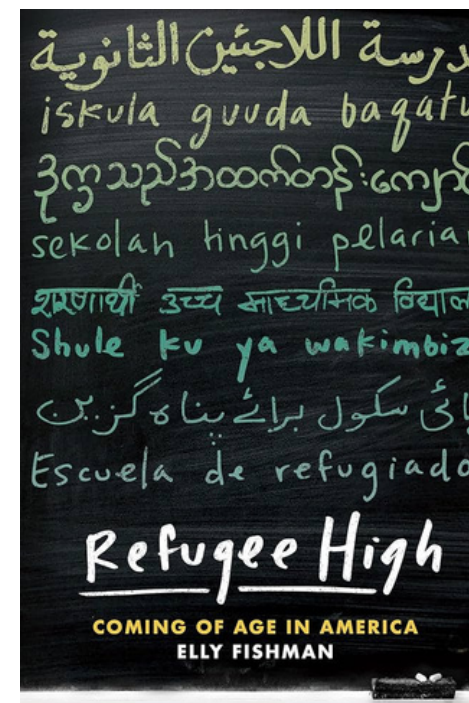 مدرسة اللاجئين الثانوية
iskula guuda baqatu
ဒုက္ခသည်အထက်တန်းကျောင်
sekolah tinggi pelaria
शरणार्थी उच्च माध्यमिक विद्याल
Shule ku ya wakimbiz
ہائی سکول برائے پناہ گزین
Escuela de refugiado
Refugee High
COMING OF AGE IN AMERICA
ELLY FISHMAN